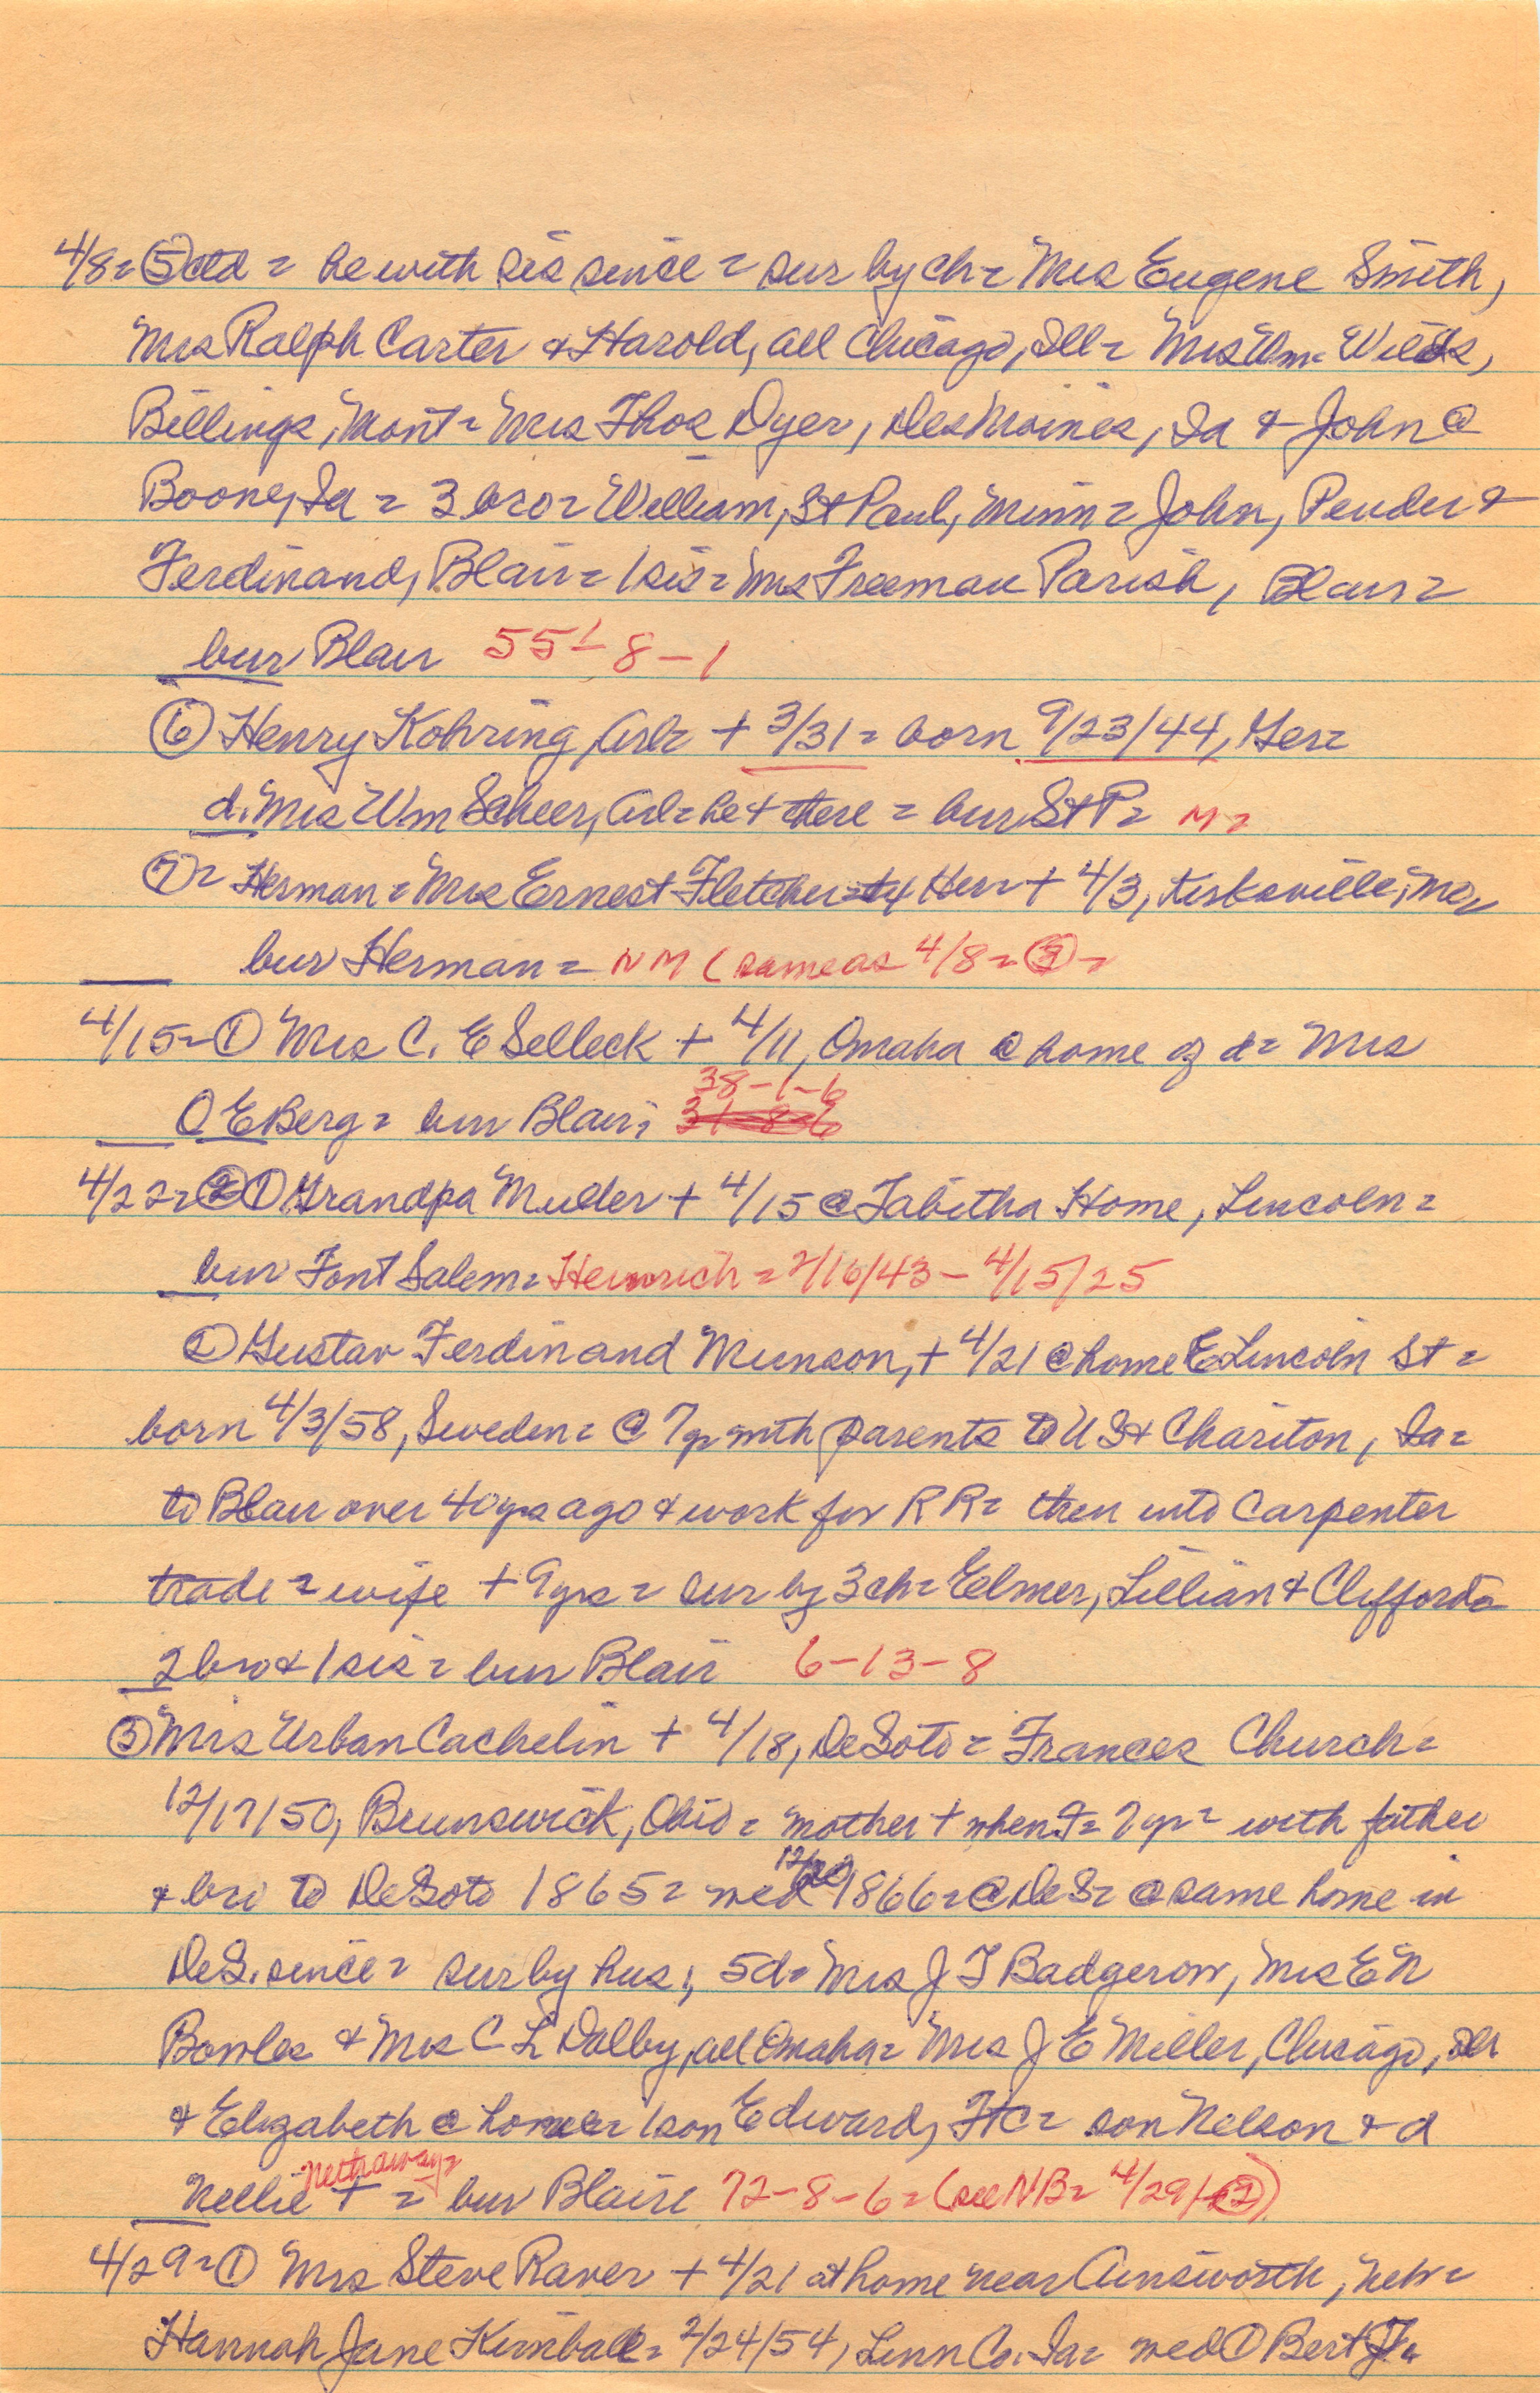 4/8= ⑤ctd = he with sis since = sur by ch= Mrs Eugene Smith,
Mrs Ralph Carter & Harold, all Chicago, Ill= Mrs Wm.
Billings, Mont= Mrs Thos Dyer, Des Moines, Ia & John @
Boone, Ia = 3 bro= William, St Paul, Minn= John, Pender &
Ferdinand, Blair= 1 sis= Mrs Freeman Parish, Blair=
bur Blair 55-8-1
⑥ Henry Kohring, Arl= + 3/31= born 9/23/44, Ger=
d. Mrs Wm Scheer, Arl= he + there = bur St P= M=
⑦= Herman= Mrs Ernest Fletcher= Her= + 4/3, Kirksville, Mo,
bur Herman= NM (same as 4/8= ③=
4/15=① Mrs C. E Selleck + 4/11, Omaha @ home of d= Mrs
O E Berg= bur Blair, 38-1-6
4/22= ① Grandpa Muller + 4/15 @ Tabitha Home, Lincoln=
bur Font Salem= Heinrich= 2/16/43 - 4/15/25
② Gustav Ferdinand Munson, + 4/21 @ home E Lincoln St=
born 4/3/58, Sweden= @ 7 yr with parents to U S & Chariton, Ia=
to Blair over 40 yrs ago & work for R R= then into carpenter
trade= wife + 9 yrs= sur by 3 ch= Elmer, Lillian & Clifford=
2 bro & 1 sis= bur Blair 6-13-8
③ Mrs Urban Cachelin + 4/18, DeSoto= Frances Church=
12/17/50, Brunswick, Ohio= mother + when F= 7 yr= with father
& bro to DeSoto 1865= wed 12/ 1866= @ DeS= @ same home in
DeS. since= sur by hus, 5 d= Mrs J T Badgerow, Mrs E N
Bowles & Mrs C L Dalby, all Omaha= Mrs J E Miller, Chicago, Ill
& Elizabeth @ home= 1 son Edward, Ft C= son Nelson & d
Nellie Nettraway= + = bur Blair 72-8-6= (see NB= 4/29/②)
4/29=① Mrs Steve Raver + 4/21 at home near Ainsworth, Neb=
Hannah Jane Kimball= 2/24/54, Linn Co. Ia= wed ① Bert